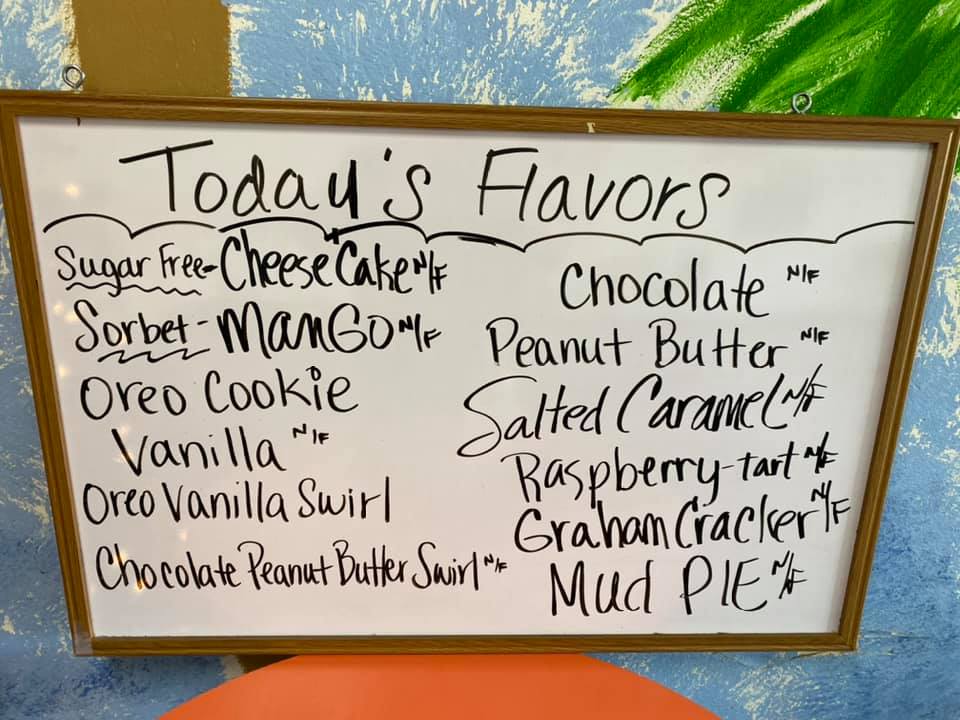 Today's Flavors
Sugar Free-Cheese Cake N/F
Sorbet-Mango N/F
Oreo Cookie
Vanilla N/F
Oreo Vanilla Swirl
Chocolate Peanut Butter Swirl N/F
Chocolate N/F
Peanut Butter N/F
Salted Caramel N/F
Raspberry-tart N/F
Graham Cracker N/F
Mud PIE N/F